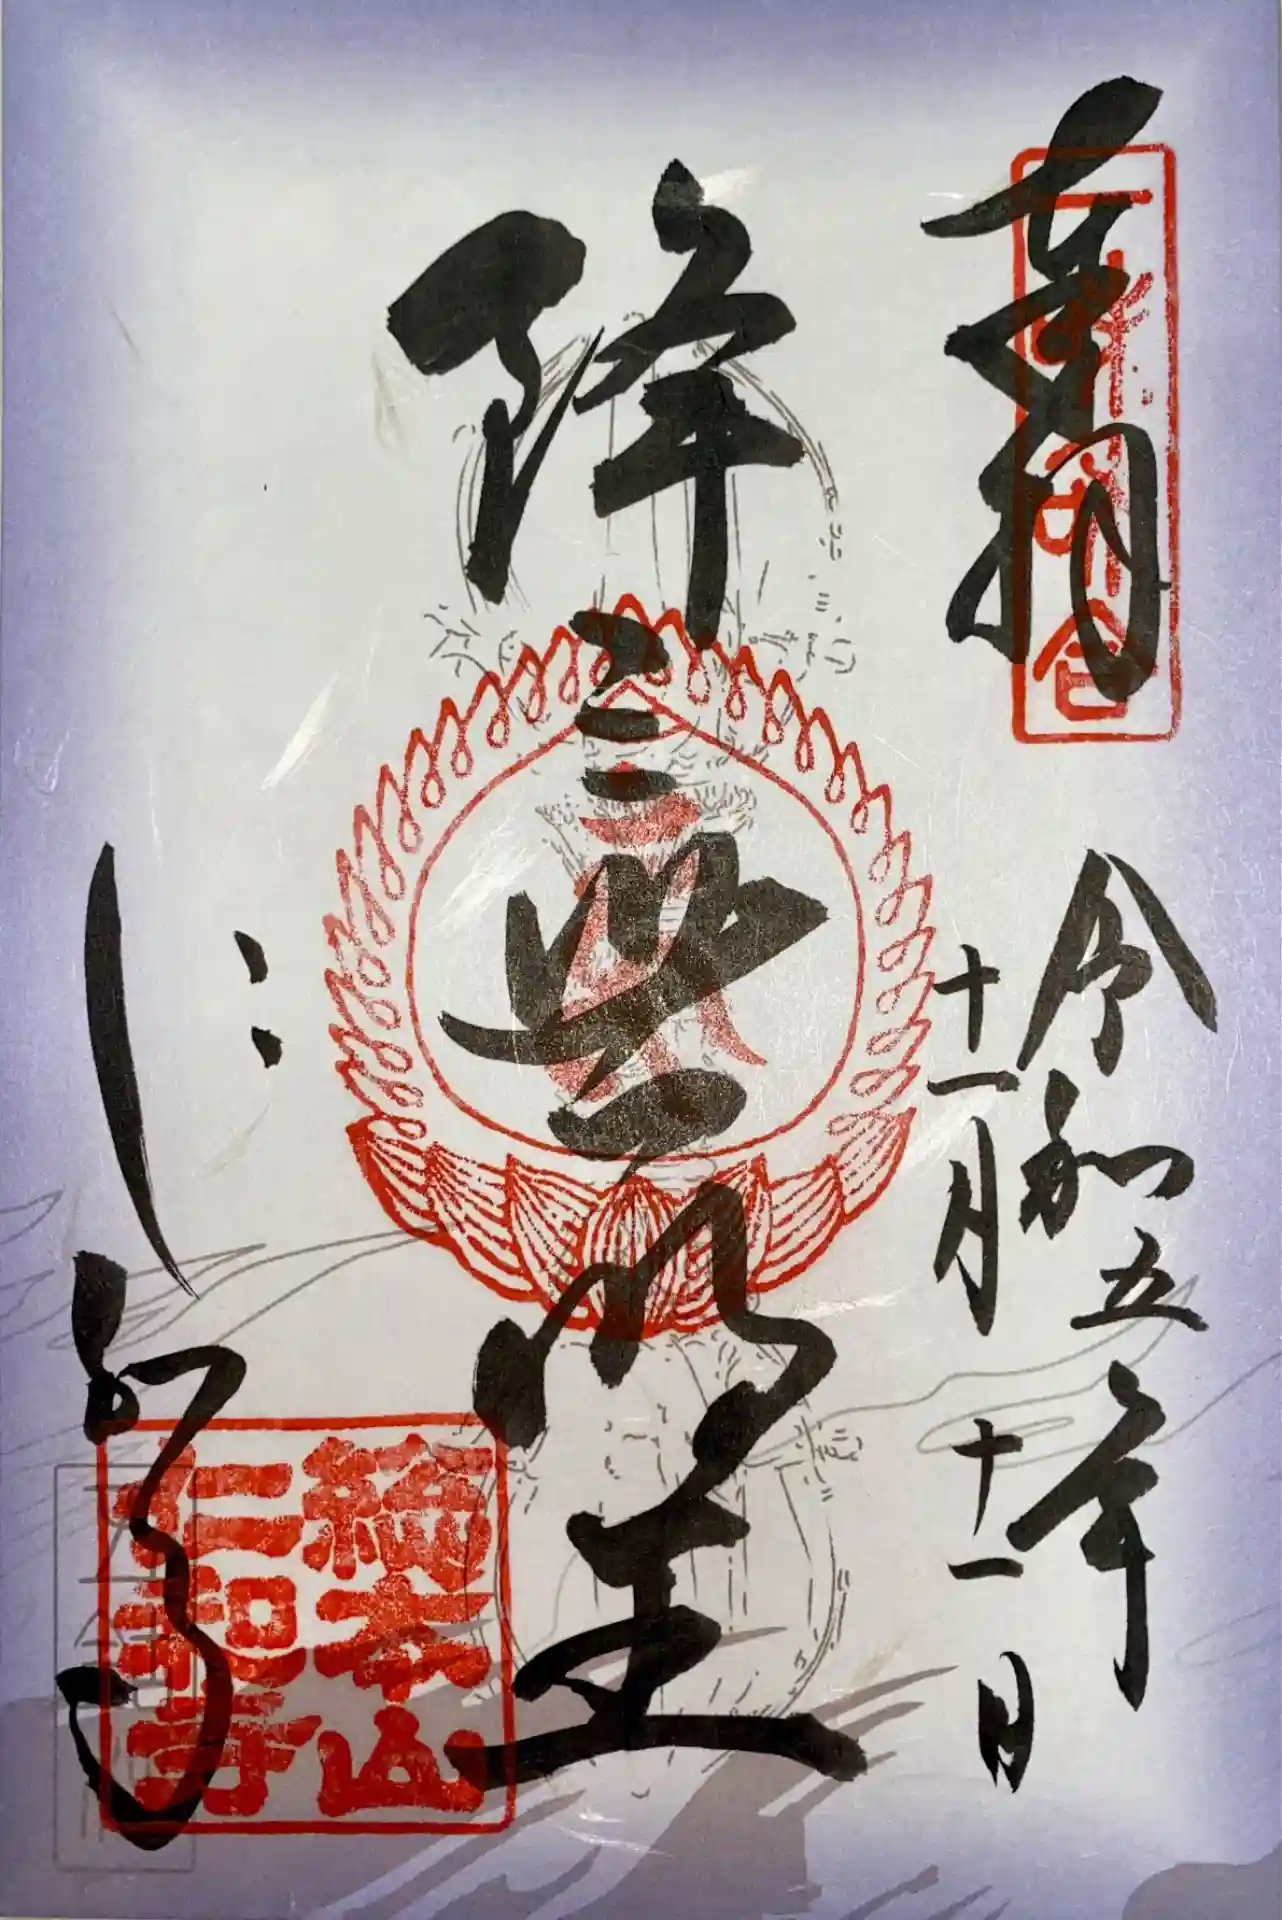 奉拝
令和五年
十一月十一日
降三世明王
仁和寺
総本山
仁和寺